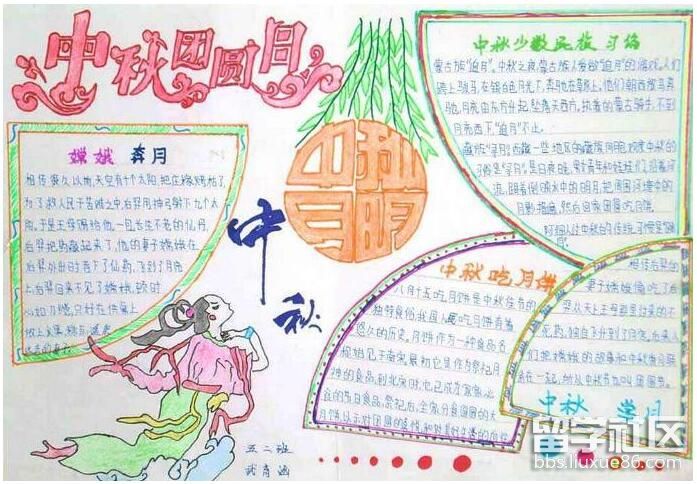 中秋团圆日
嫦娥 奔月
相传很久以前,天空有十个太阳,把庄稼烤枯了,
为了救人民于苦难之中,后羿用神弓射下九个太
阳,于是王母赐给他一包长生不老的仙丹,
后羿把药藏起来了,他的妻子嫦娥在
后羿外出时吞下了仙药,飞到了月亮
上,后羿回来不见了嫦娥,顿时
心如刀绞,只好在供桌上
放上水果
中秋
中秋
月明
中秋少数民族习俗
蒙古族"追月",中秋之夜,蒙古族人爱做"追月"的游戏,人们
跨上骏马,在银白色月光下,奔驰在草原上,他们朝西放马奔
驰,月亮由东方升起,坠落天西方,执着的蒙古骑手,不到
月亮西下"追月"不止。
藏族"寻月",西藏一些地区的藏族同胞欢度中秋的
习俗是"寻月",是日夜晚,男女青年和娃娃们,沿着河
流,跟着倒映水中的明月,把周围河塘中的
月影
然后回家团圆吃月饼
中秋吃月饼
八月十五吃月饼是中秋佳节的
独特食俗,我国人民吃月饼有着
悠久的历史。月饼作为一种食品名
最初它是作为祭祀月
神的食品,到北宋时,它已成
祭祀后,全家分食圆圆的大
相传后羿的
妻子嫦娥偷吃了后
羿从天上王母那里讨来的不
死药,独自飞升到了月宫,后来人
们把嫦娥的故事和中秋赏月联
系在一起,所以中秋节也叫团圆节。
中秋 赏月
五二班
留学社区
bbs.liuxue86.com